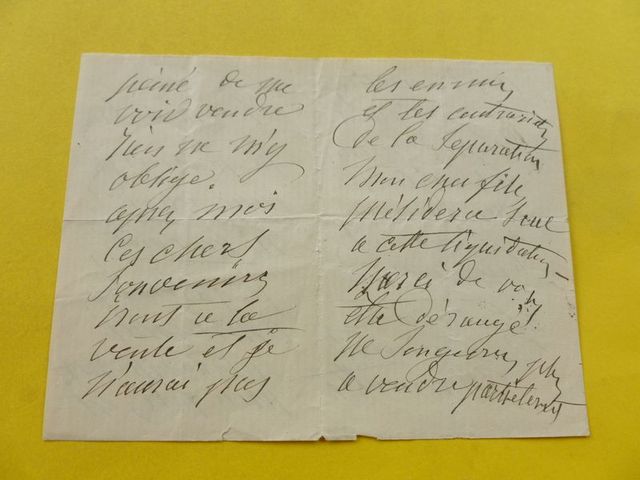 peiné de me
voir vendre
rien ne m'y
oblige.
après moi
ces chers
souvenirs
iront à la
vente et je
n'aurai pas
les ennuis
et les contrariétés
de la séparation
mon cher fils
présidera seul
a cette liquidation –
Merci de vous
être dérangé!
ne songeons plus
a vendre